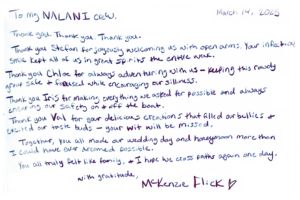 March 14, 2023
To my NALANI crew,
Thank you. Thank you. Thank you.
Thank you Stefan for joyously welcoming us with open arms. Your infectious
smile kept all of us in great spirits the entire week.
Thank you Chloe for always adventuring with us - keeping this rowdy
group safe & while encouraging our silliness.
Thank you Iris for making everything we asked for possible and always
ensuring our safety on & off the boat.
Thank you Val for your delicious creations that filled our bellies &
excited our taste buds - your wit will be missed.
Together, you all made our wedding day and honeymoon more than
I could have ever dreamed possible.
You all truly felt like family, & I hope we cross paths again one day.
with gratitude,
McKenzie Flick